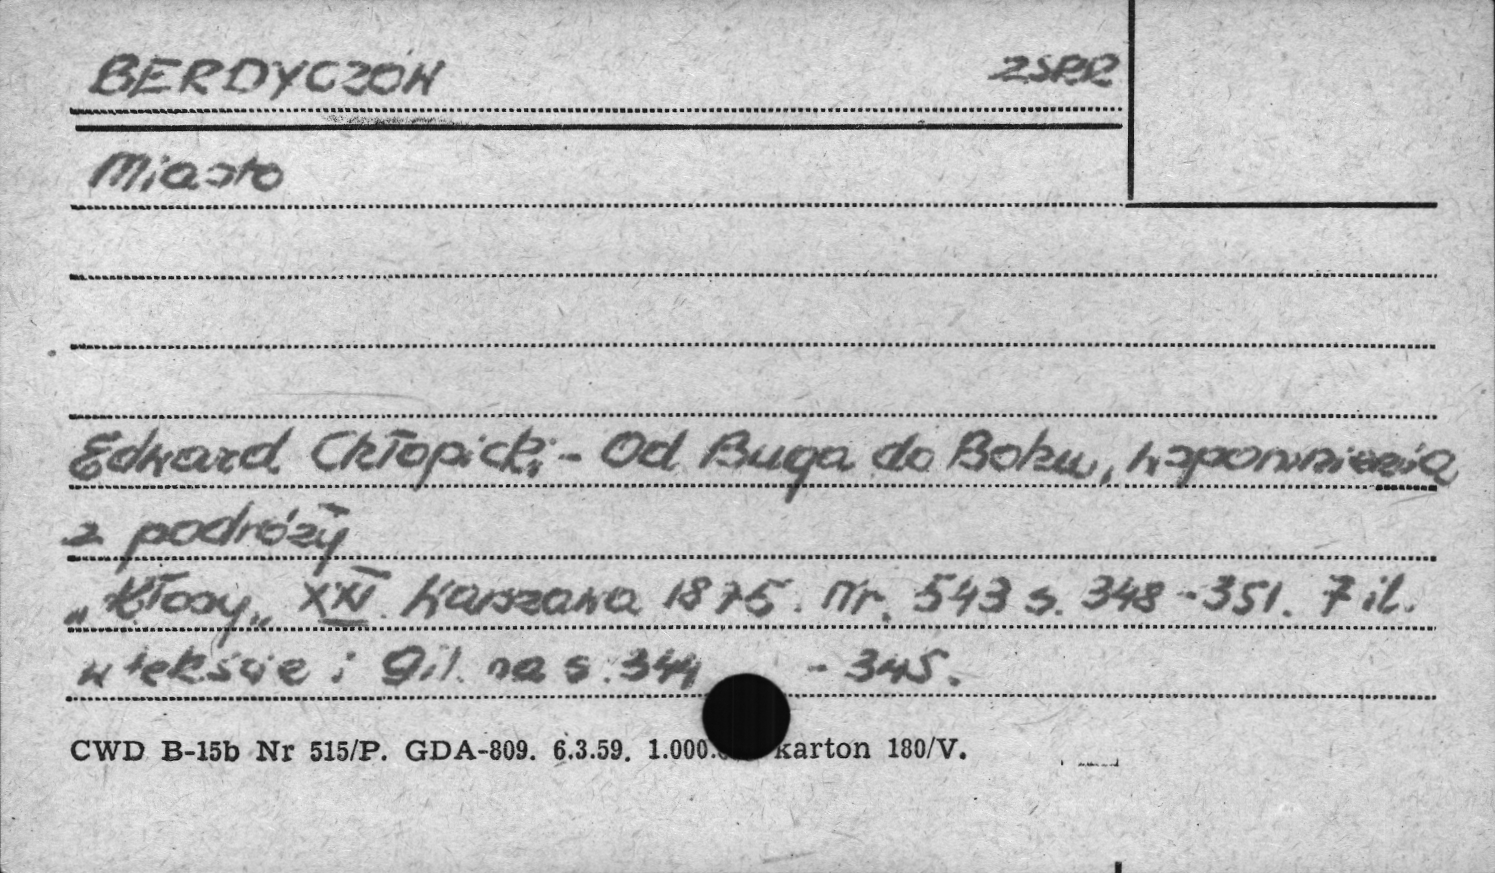 BERDYCZÓW ZSRR
Miasto
Edward Chłopicki - Od Buga do Bohu, wspomnienia
z podróży
„Kłosy„ XXI. Warszawa 1875. Nr. 543 s. 348-351. 7 il.
w tekście i 9 il. na s. 344 - 345.
CWD B-15b Nr 515/P. GDA-809. 6.3.59. karton 180/V.